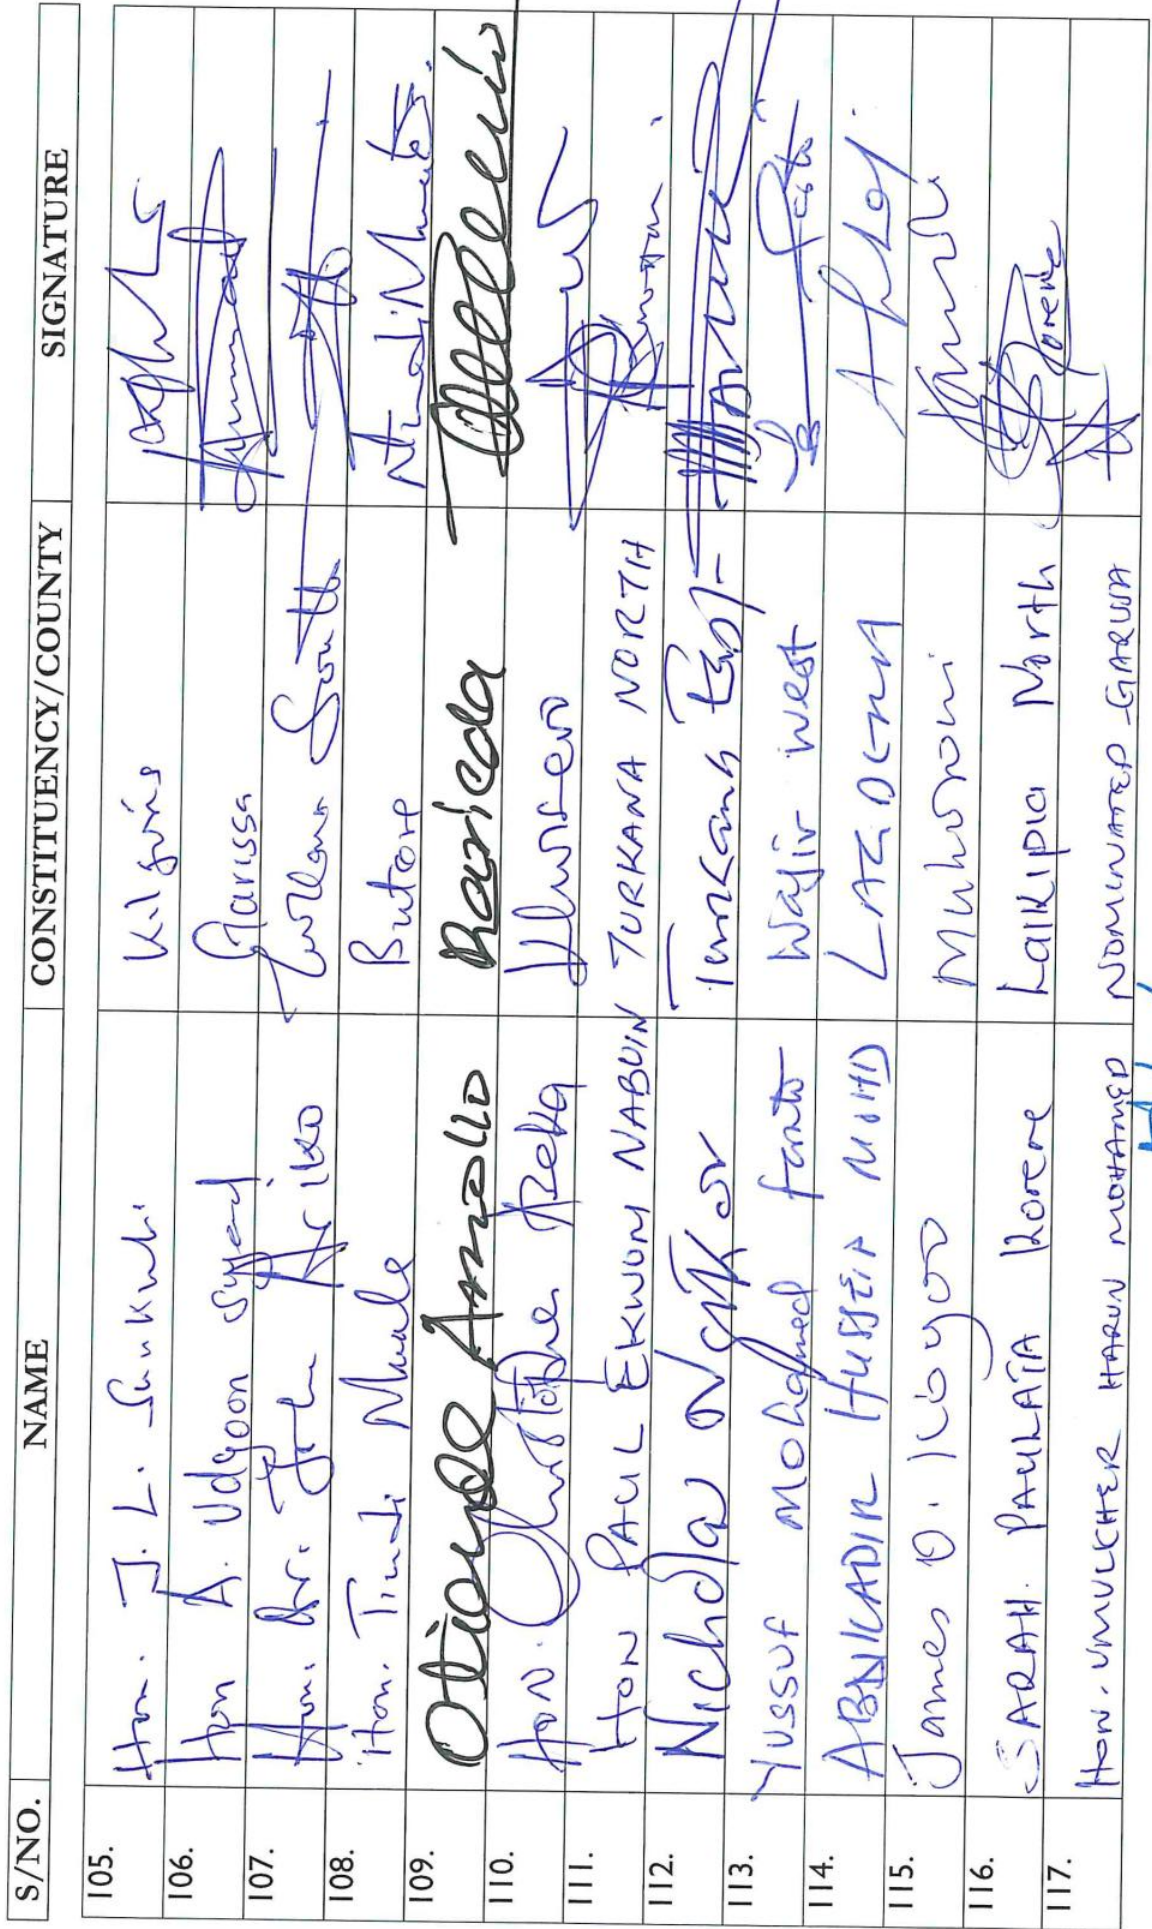 S/NO. NAME CONSTITUENCY/COUNTY SIGNATURE
105. Hon. J. L. Sunkuli Kilgoris
106. Hon A. Udgoon Syad Garissa
107. Hon. Dr. John Ariko Turkana South
108. Hon. Tindi Mwale Butere Ntindi Mwale
109. Otiende Amollo Rarieda
110. HON. Christopher Aseka Khwisero
111. HON PAUL EKWOM NABUIN TURKANA NORTH
112. Nicholas Ngikor Turkana East
113. Yussuf Mohamed farto Wajir West
114. ABDIKADIR HUSSEIN MOHD LAGDERA
115. James O. Koyoo Muhoroni
116. SARAH PAULATA Korere Laikipia North Korere
117. HON. UMULKHER HARUN MOHAMED NOMINATED - GARISSA